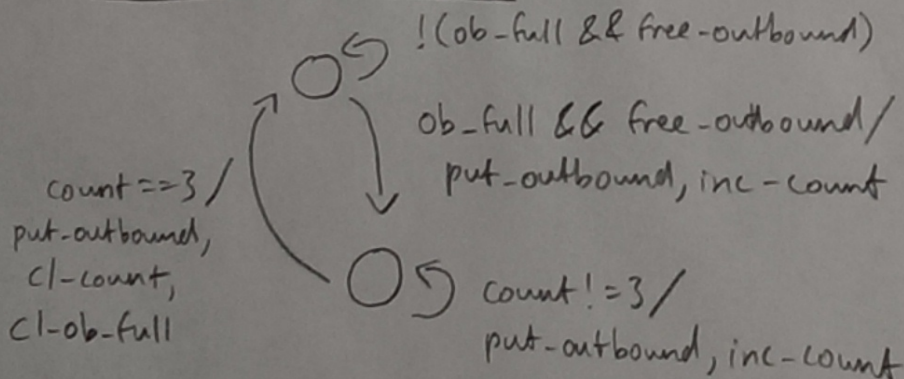 !(ob-full && free-outbound)
ob_full && free-outbound/
put-outbound, inc-count
count==3/
put-outbound,
cl-count,
cl-ob-full
count!=3/
put-outbound, inc-count